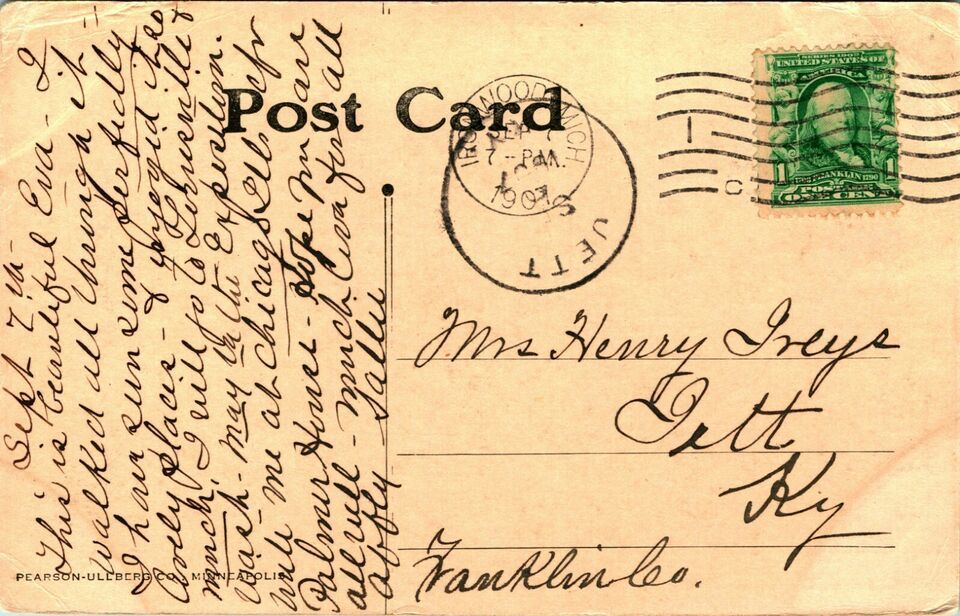 Post Card
Sept 7th -
This is beautiful Eva - I
walked all through it
I have seen some perfectly
lovely places - I enjoyed it so
much, I will go to Louisville &
Wash - may to the Exposition.
write me at Chicago Ills c/o
Palmer House - Hope you are
all well - much love for all
affly Sallie
IRONWOOD MICH
SEP 7
7 - PM
1907
JETT
1
C
SERIES 1902
UNITED STATES OF
AMERICA
1706 FRANKLIN 1790
POSTAGE
1 ONE CENT 1
Mrs Henry Ireys
Jett
Ky
Franklin Co.
PEARSON-ULLBERG CO., MINNEAPOLIS